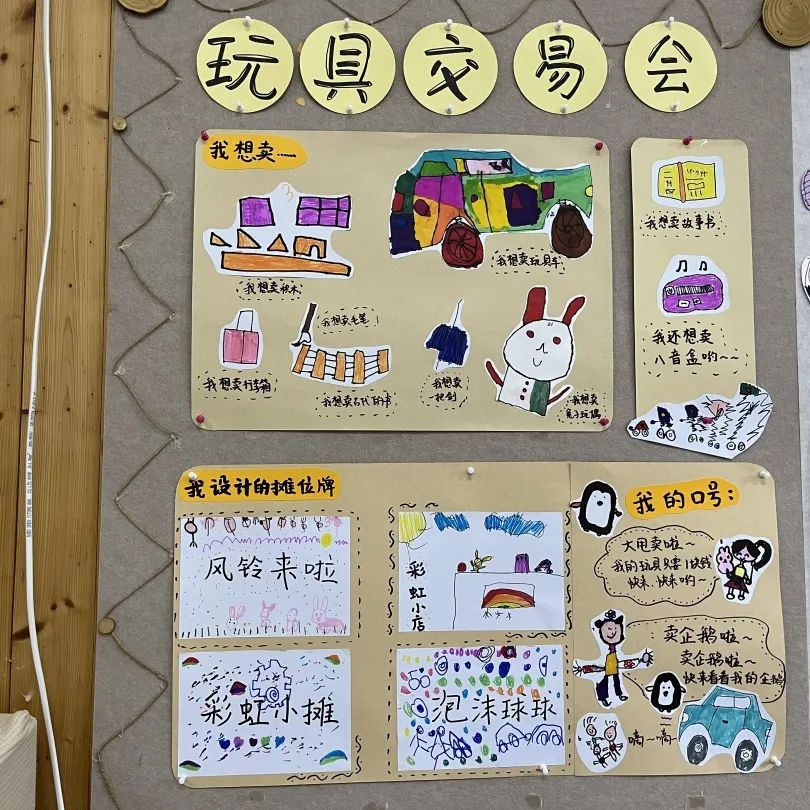 玩具交易会
我想卖……
我想卖积木
我想卖玩具车
我想卖行李箱
我想卖毛笔
我想卖古代的书
我想卖
一把剑
我想卖
兔子玩偶
我想卖故事书
我还想卖
八音盒哟~~
我设计的摊位牌
风铃来啦
彩虹小店
彩虹小摊
泡沫球球
我的口号:
大甩卖啦~
我的玩具只要1块钱
快来、快来哟~
卖企鹅啦~
卖企鹅啦~
快来看看我的企鹅
嘀~嘀~